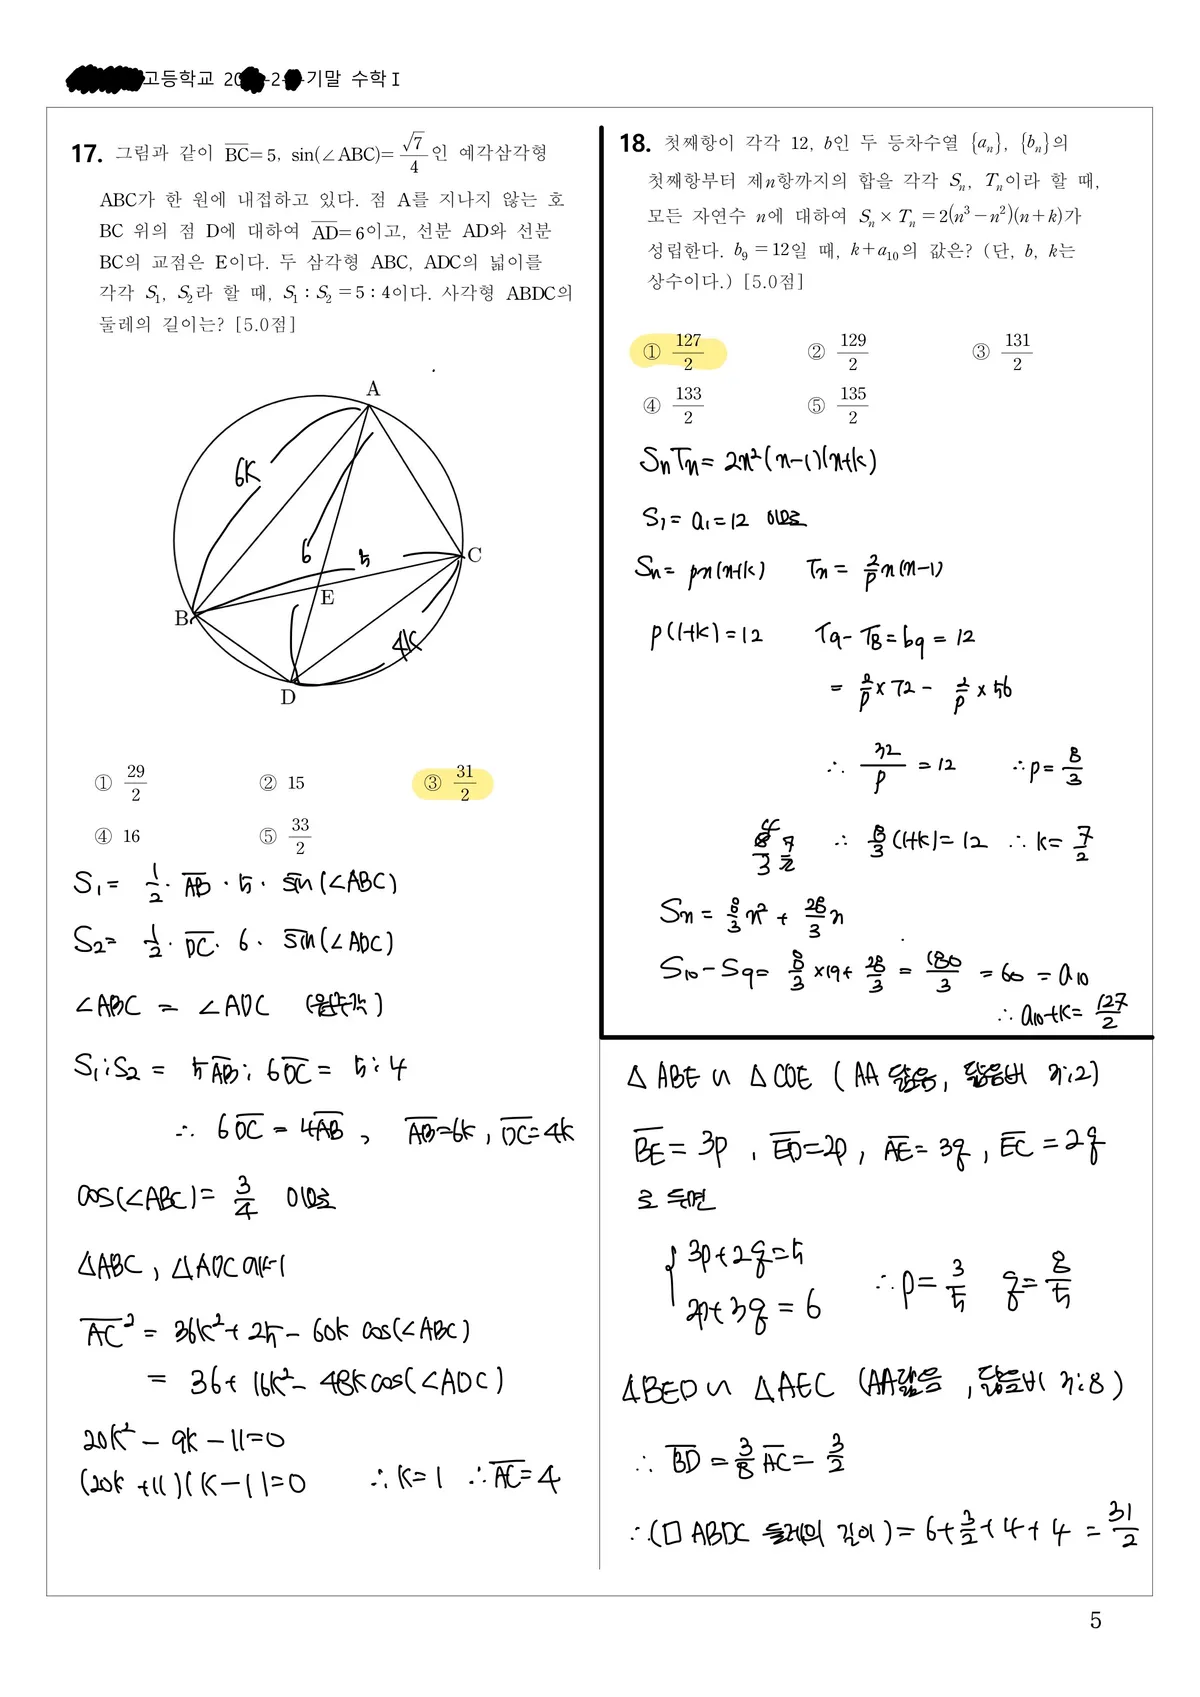 고등학교 20 -2- -기말 수학Ⅰ
17. 그림과 같이 \overline{BC}=5, sin(∠ABC)=\frac{\sqrt{7}}{4}인 예각삼각형
ABC가 한 원에 내접하고 있다. 점 A를 지나지 않는 호
BC 위의 점 D에 대하여 \overline{AD}=6이고, 선분 AD와 선분
BC의 교점은 E이다. 두 삼각형 ABC, ADC의 넓이를
각각 S₁, S₂라 할 때, S₁ : S₂ = 5 : 4이다. 사각형 ABDC의
둘레의 길이는? [5.0점]
A
6k
6
5
C
E
B
4k
D
① 29/2 ② 15 ③ 31/2
④ 16 ⑤ 33/2
S₁ = 1/2 · \overline{AB} · 5 · sin(∠ABC)
S₂ = 1/2 · \overline{DC} · 6 · sin(∠ADC)
∠ABC = ∠ADC (원주각)
S₁:S₂ = 5\overline{AB} : 6\overline{DC} = 5:4
∴ 6\overline{DC} = 4\overline{AB} , \overline{AB}=6k, \overline{DC}=4k
cos(∠ABC) = 3/4 이므로
△ABC, △ADC에서
\overline{AC}² = 36k²+25-60k cos(∠ABC)
= 36+16k²-48k cos(∠ADC)
20k²-9k-11=0
(20k+11)(k-1)=0 ∴k=1 ∴\overline{AC}=4
18. 첫째항이 각각 12, b인 두 등차수열 {aₙ}, {bₙ}의
첫째항부터 제n항까지의 합을 각각 Sₙ, Tₙ이라 할 때,
모든 자연수 n에 대하여 Sₙ × Tₙ = 2(n³-n²)(n+k)가
성립한다. b₉ = 12일 때, k+a₁₀의 값은? (단, b, k는
상수이다.) [5.0점]
① 127/2 ② 129/2 ③ 131/2
④ 133/2 ⑤ 135/2
SₙTₙ = 2n²(n-1)(n+k)
S₁ = a₁ = 12 이므로
Sₙ = pn(n+k) Tₙ = 2/p n(n-1)
p(1+k) = 12 T₉-T₈ = b₉ = 12
= 2/p × 72 - 2/p × 56
∴ 32/p = 12 ∴p = 8/3
∴ 8/3 (1+k) = 12 ∴ k = 7/2
Sₙ = 8/3 n² + 28/3 n
S₁₀-S₉ = 8/3 ×19+ 28/3 = 180/3 = 60 = a₁₀
∴ a₁₀+k = 127/2
△ABE ∽ △CDE (AA 닮음, 닮음비 3:2)
\overline{BE} = 3p , \overline{ED}=2p, \overline{AE}=3q, \overline{EC}=2q
로 두면
{ 3p+2q=5
2p+3q=6 ∴p= 3/5 q= 8/5
△BED ∽ △AEC (AA닮음, 닮음비 3:8)
∴ \overline{BD} = 3/8 \overline{AC} = 3/2
∴(□ABDC 둘레의 길이) = 6+3/2+4+4 = 31/2
5